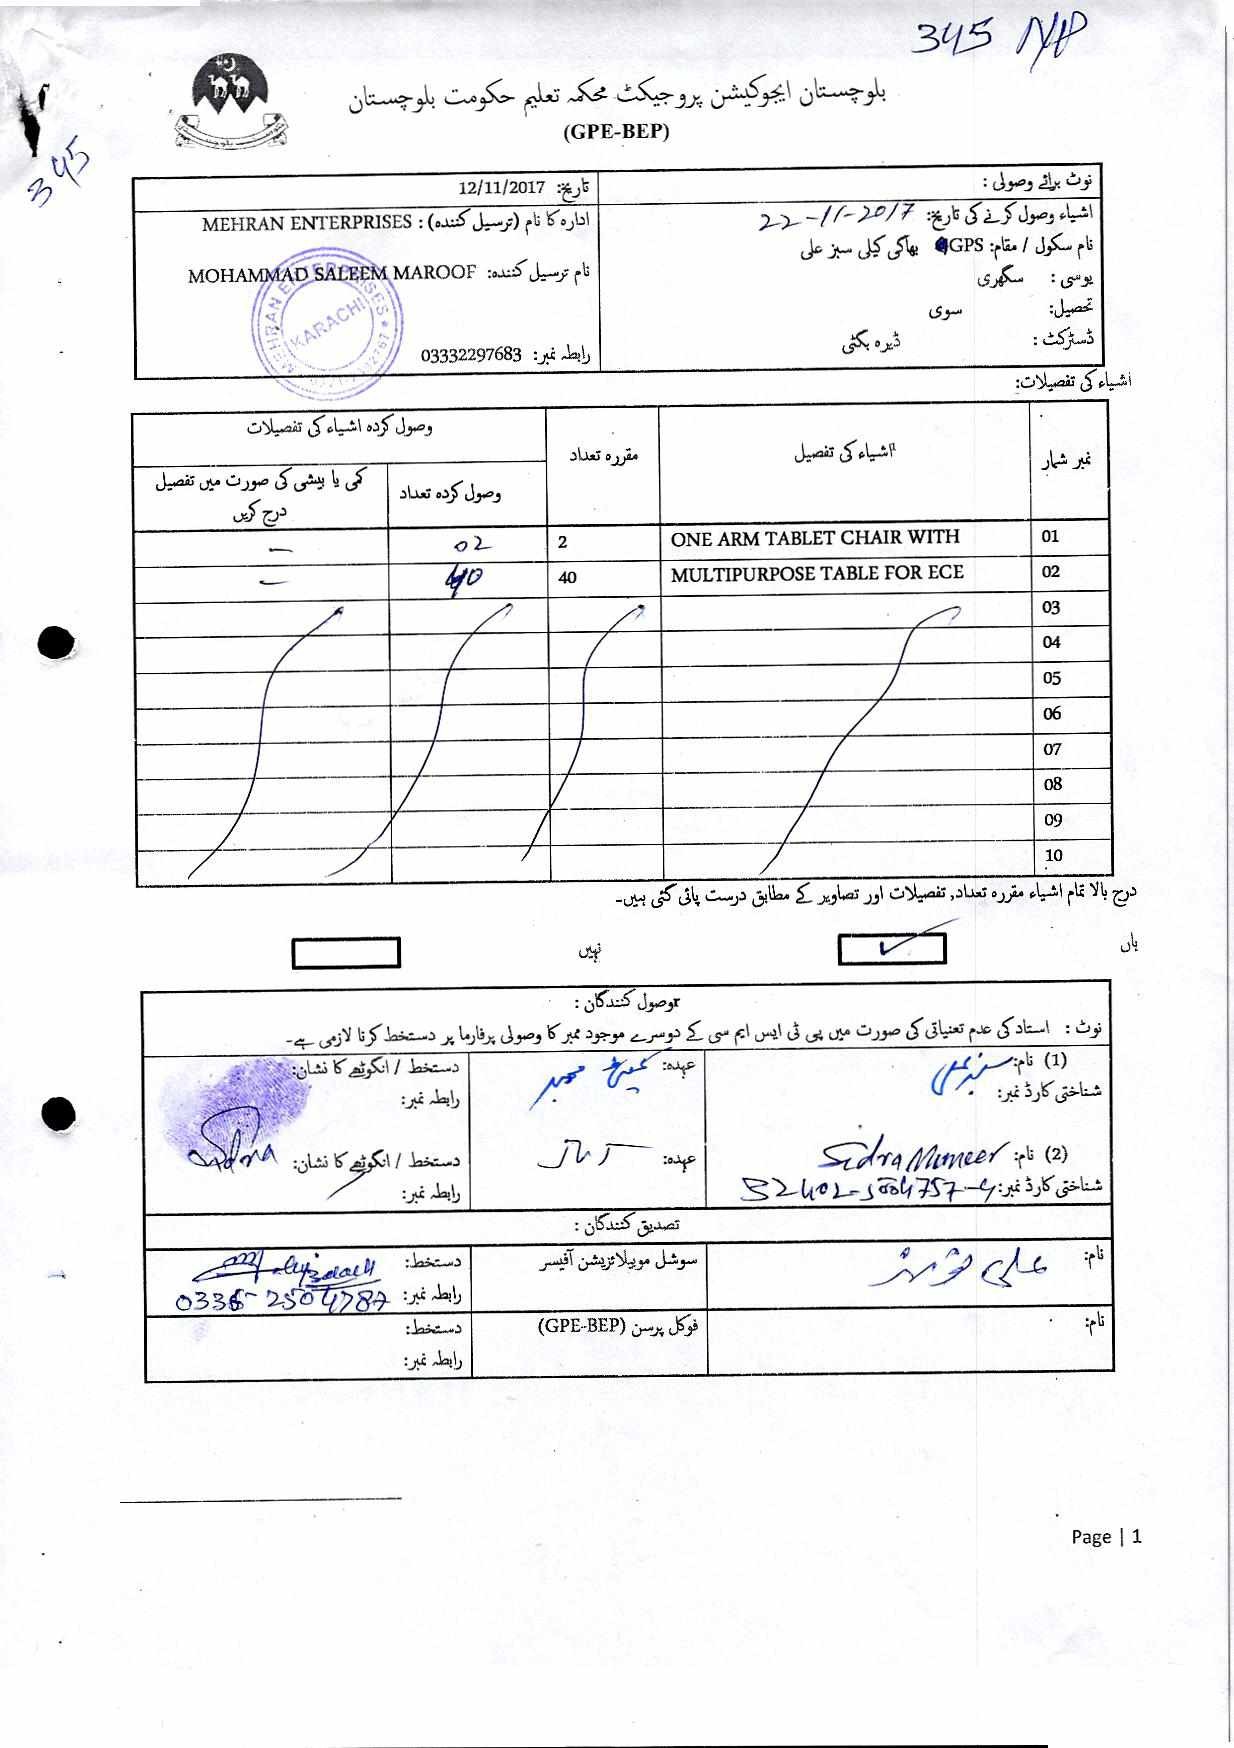 345 N/P
345
بلوچستان ایجوکیشن پروجیکٹ محکمہ تعلیم حکومت بلوچستان
(GPE-BEP)
نوٹ برائے وصولی :
تاریخ: 12/11/2017
اشیاء وصول کرنے کی تاریخ: 22-11-2017
ادارہ کا نام (ترسیل کنندہ) : MEHRAN ENTERPRISES
نام سکول / مقام: GPS بھاکی کیلی سبز علی
نام ترسیل کنندہ: MOHAMMAD SALEEM MAROOF
یوسی : سگھری
تحصیل: سوی
ڈسٹرکٹ : ڈیرہ بگٹی
رابطہ نمبر: 03332297683
MEHRAN ENTERPRISES
KARACHI
اشیاء کی تفصیلات:
نمبر شمار
اشیاء کی تفصیل
مقررہ تعداد
وصول کردہ اشیاء کی تفصیلات
وصول کردہ تعداد
کمی یا بیشی کی صورت میں تفصیل
درج کریں
01 ONE ARM TABLET CHAIR WITH 2 02 –
02 MULTIPURPOSE TABLE FOR ECE 40 40 –
03
04
05
06
07
08
09
10
درج بالا تمام اشیاء مقررہ تعداد, تفصیلات اور تصاویر کے مطابق درست پائی گئی ہیں۔
ہاں ✓ نہیں
وصول کنندگان :
نوٹ : استاد کی عدم تعنیاتی کی صورت میں پی ٹی ایس ایم سی کے دوسرے موجود ممبر کا وصولی پرفارما پر دستخط کرنا لازمی ہے۔
(1) نام: عہدہ: دستخط / انگوٹھے کا نشان:
شناختی کارڈ نمبر: رابطہ نمبر:
(2) نام: Sidra Muneer عہدہ: دستخط / انگوٹھے کا نشان: Sidra
شناختی کارڈ نمبر: رابطہ نمبر:
تصدیق کنندگان :
نام: علی سوشل موبیلائزیشن آفیسر دستخط:
رابطہ نمبر:
نام: فوکل پرسن (GPE-BEP) دستخط:
رابطہ نمبر:
Page | 1